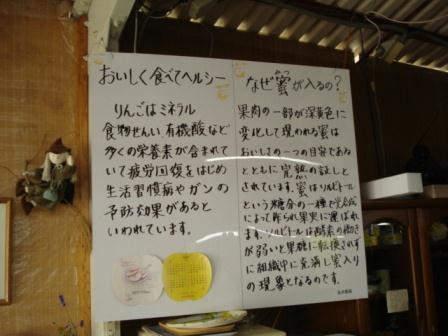 おいしく食べてヘルシー
りんごはミネラル
食物せんい、有機酸など
多くの栄養素が含まれて
いて疲労回復をはじめ
生活習慣病やガンの
予防効果があると
いわれています。
なぜ蜜が入るの?
みつ
果肉の一部が深黄色に
変化して現われる蜜は
おいしさの一つの目安である
とともに完熟の証しと
されています。蜜はソルビトール
という糖分の一種で光合成
によって作られ果実に運ばれ
ます。ソルビトールは酵素の働き
が弱いと果糖に転換されず
に組織中に充満し蜜入り
の現象となるのです。